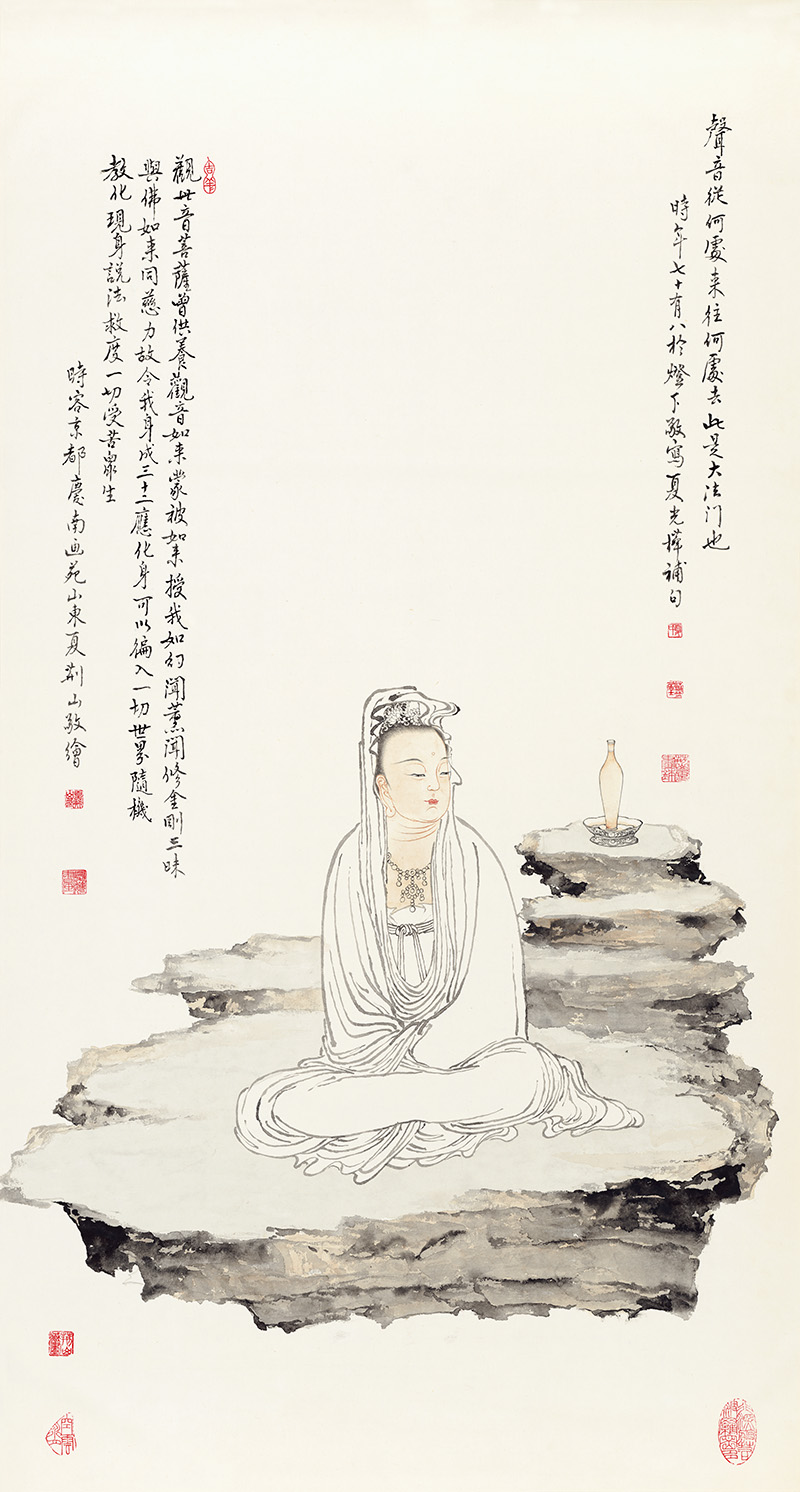 聲音從何處来往何處去此是大法门也
時年七十有八於燈下敬寫夏光璍補句
觀世音菩薩曾供養觀音如来蒙被如来授我如幻聞薰聞修金剛三昧
與佛如来同慈力故令我身成三十二應化身可以徧入一切世界隨機
教化現身説法救度一切受苦眾生
時客京都慶南画苑山東夏荊山敬繪